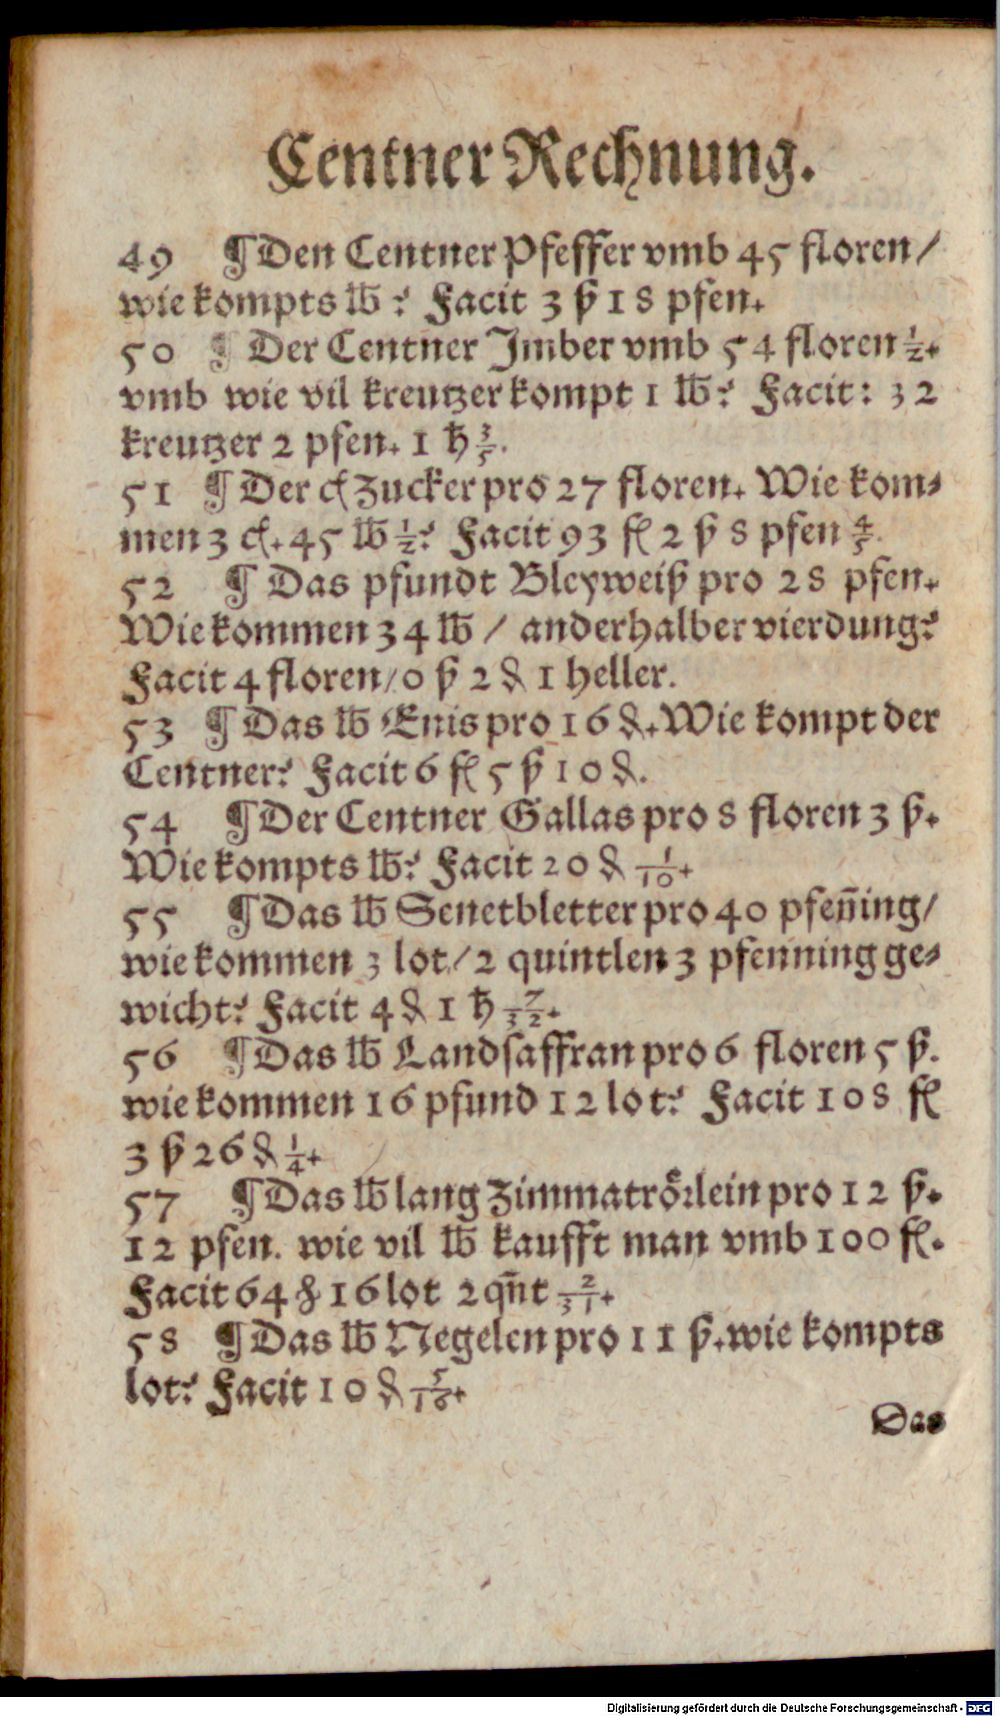 Centner Rechnung.
49 ¶ Den Centner Pfeffer vmb 45 floren /
wie kompts ℔ ? Facit 3 ß 18 pfen.
50 ¶ Der Centner Jmber vmb 54 floren ½.
vmb wie vil kreutzer kompt 1 ℔? Facit: 32
kreutzer 2 pfen. 1 ħ ⅗.
51 ¶ Der cł Zucker pro 27 floren. Wie kom⸗
men 3 cł. 45 ℔ ½? Facit 93 fl 2 ß 8 pfen ⅘.
52 ¶ Das pfundt Bleyweiß pro 28 pfen.
Wie kommen 34 ℔ / anderhalber vierdung?
Facit 4 floren / 0 ß 2 ₰ 1 heller.
53 ¶ Das ℔ Enis pro 16 ₰. Wie kompt der
Centner? Facit 6 fl 5 ß 10 ₰.
54 ¶ Der Centner Gallas pro 8 floren 3 ß.
Wie kompts ℔? Facit 20 ₰ 1/10.
55 ¶ Das ℔ Senetbletter pro 40 pfen̄ing /
wie kommen 3 lot / 2 quintlen 3 pfenning ge⸗
wicht? Facit 4 ₰ 1 ħ 7/32.
56 ¶ Das ℔ Landsaffran pro 6 floren 5 ß.
wie kommen 16 pfund 12 lot? Facit 108 fl
3 ß 26 ₰ ¼.
57 ¶ Das ℔ lang Zimmatroͤrlein pro 12 ß.
12 pfen. wie vil ℔ kaufft man vmb 100 fl.
Facit 64 ℔ 16 lot 2 qn̄t 2/31.
58 ¶ Das ℔ Negelen pro 11 ß. wie kompts
lot? Facit 10 ₰ 5/16.
Das
Digitalisierung gefördert durch die Deutsche Forschungsgemeinschaft - DFG